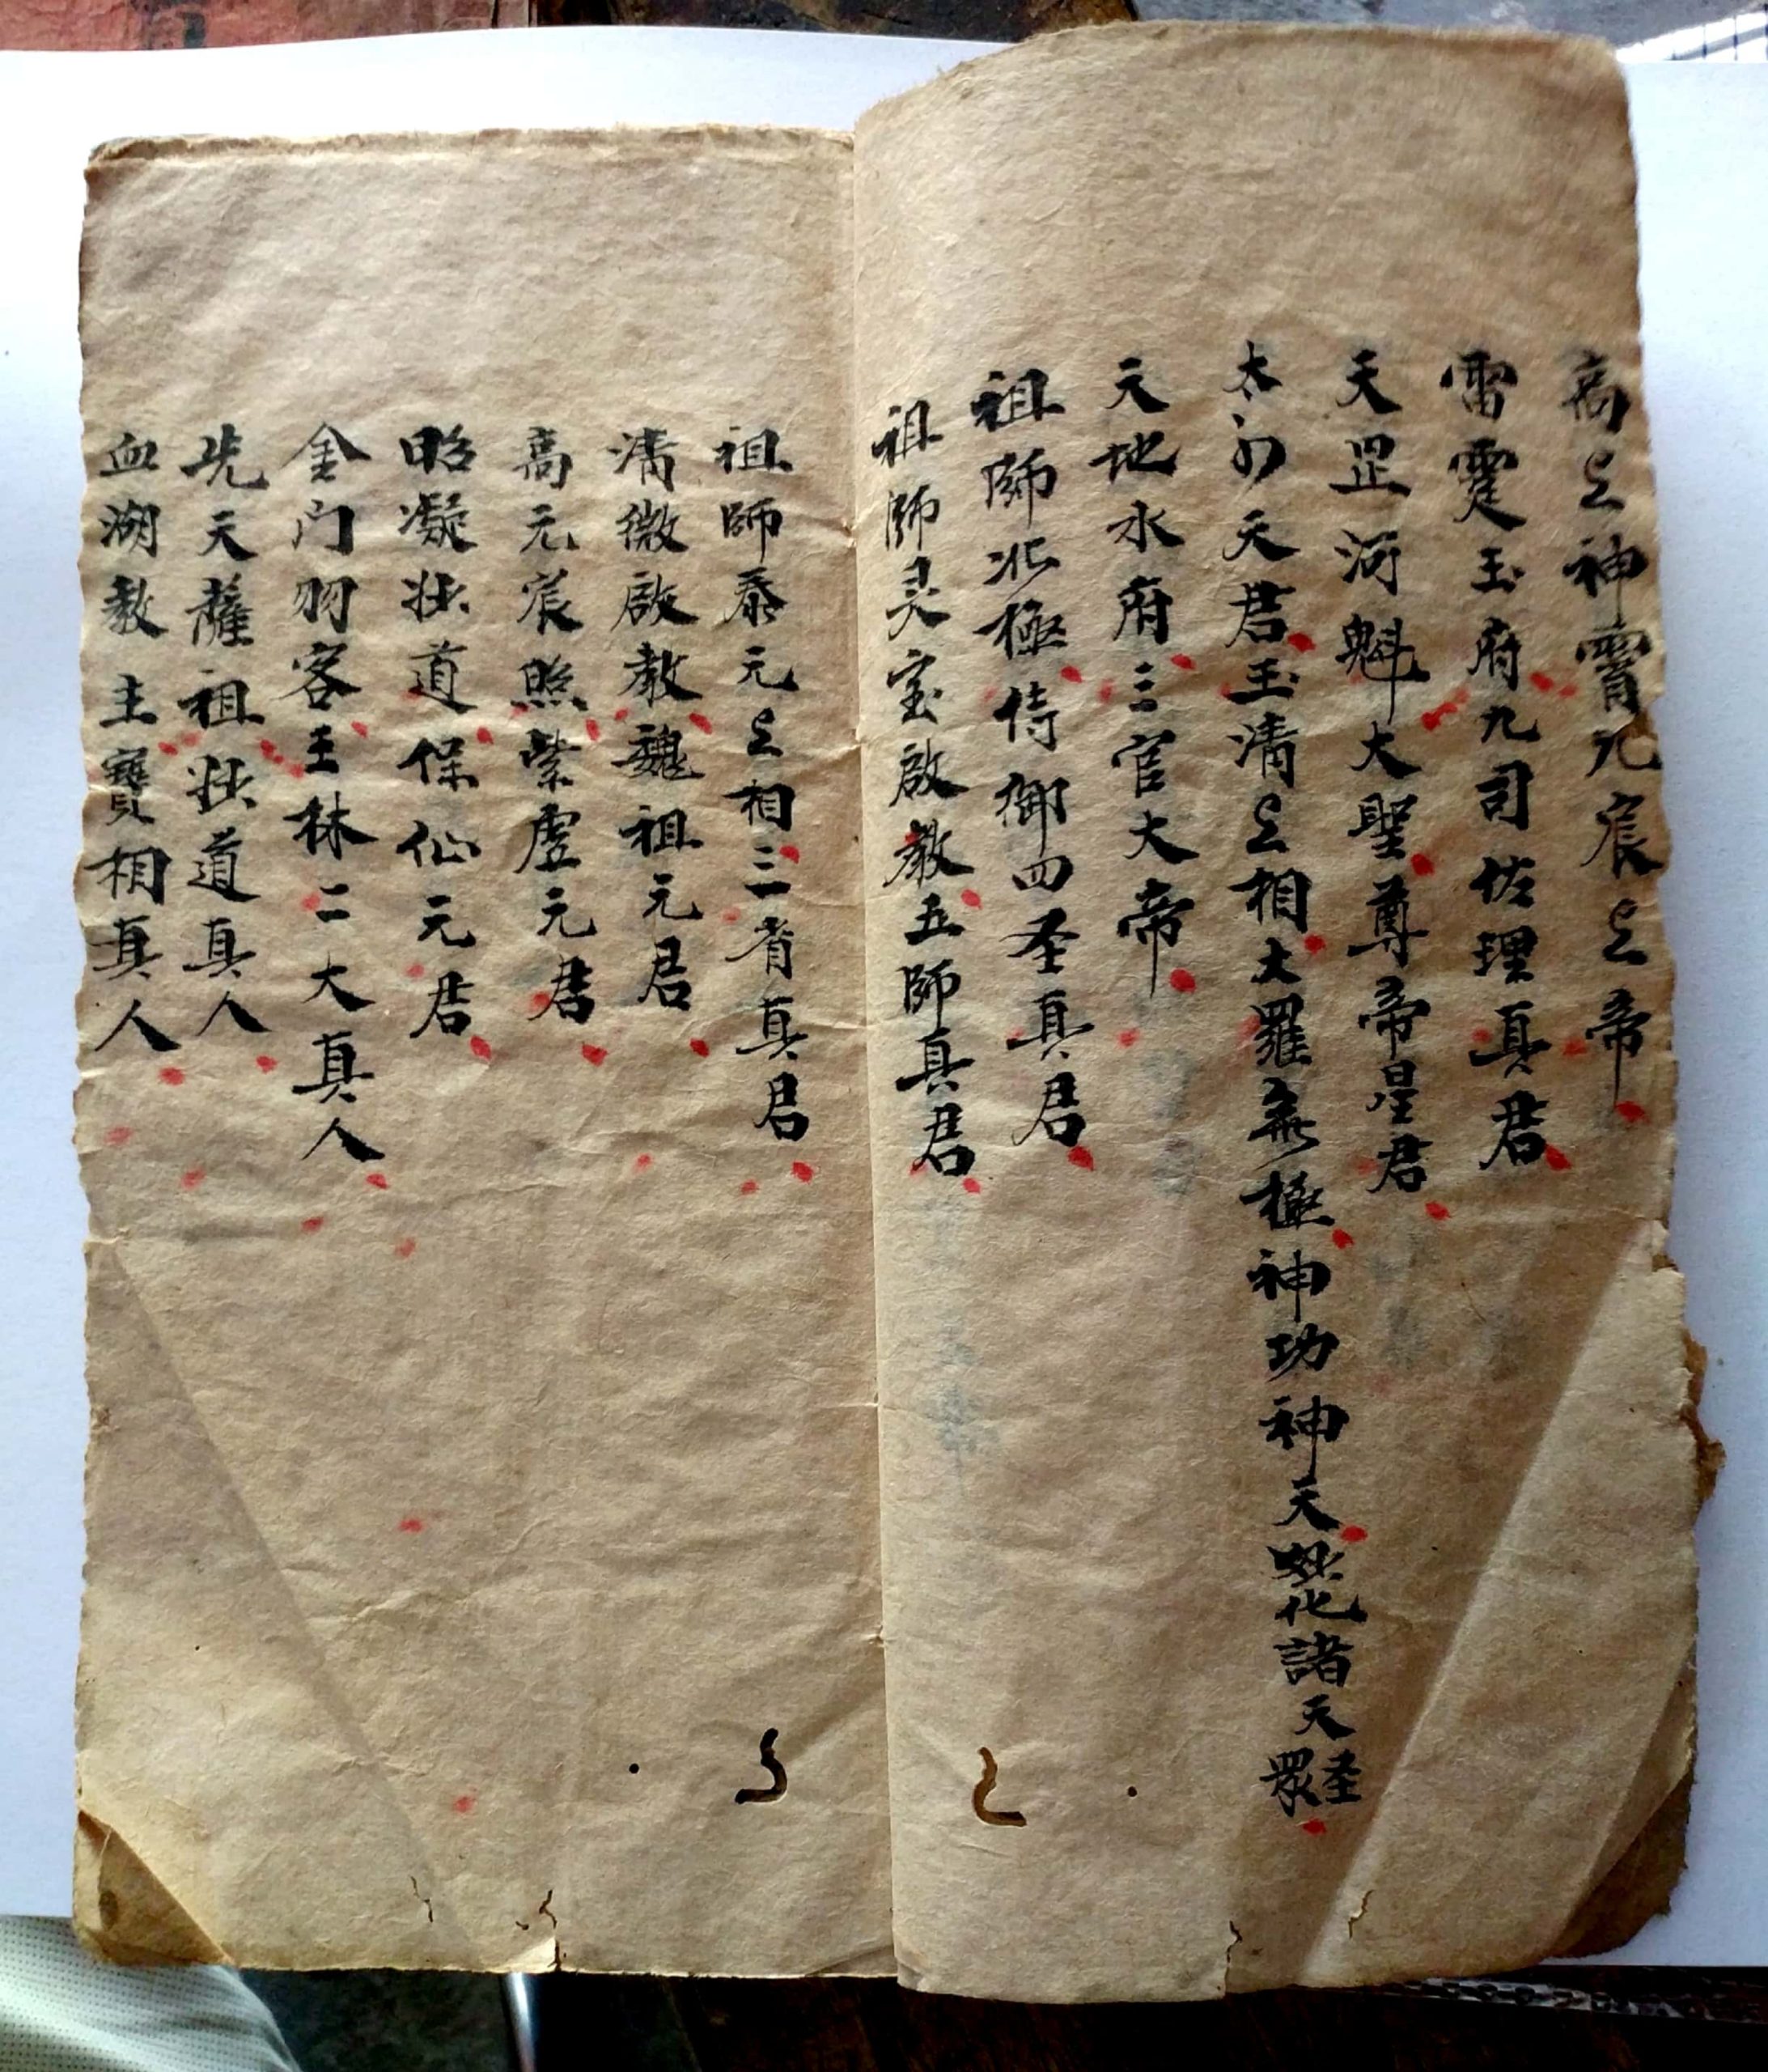 高上神霄九宸上帝
雷霆玉府九司佐理真君
天罡河魁大聖尊帝星君
天君玉清上相大羅無極神功神天 化諸天聖眾
天地水府三官大帝
祖師北極侍御四圣真君
祖師灵宝啟教五師真君
祖師泰元上相三省真君
清微啟教魏祖元君
高元宸照紫虛元君
昭凝 道保仙元君
金门羽客王林二大真人
先天薩祖 道真人
血湖教主寶相真人